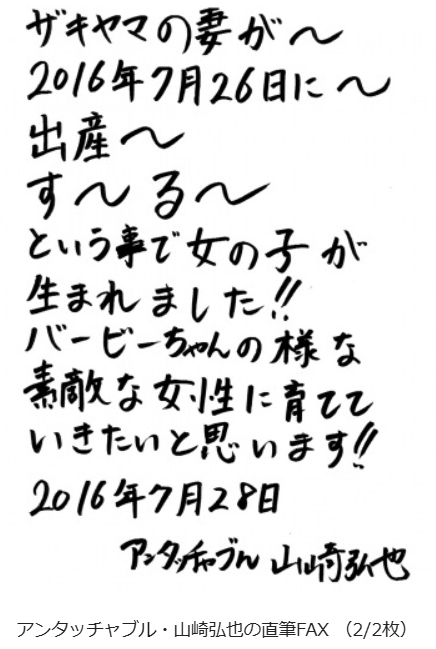 ザキヤマの妻が〜
2016年7月26日に〜
出産〜
す〜る〜
という事で女の子が
生まれました!!
バービーちゃんの様な
素敵な女性に育てて
いきたいと思います!!
2016年7月28日
アンタッチャブル 山崎弘也
アンタッチャブル・山崎弘也の直筆FAX （2/2枚）